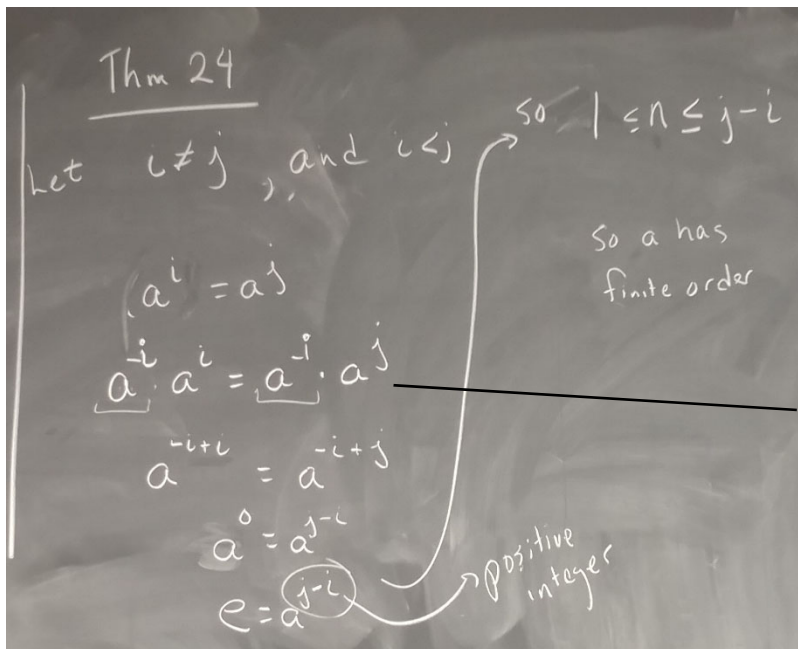 Thm 24
Let i ≠ j, and i < j
a^i = a^j
a^-i · a^i = a^-i · a^j
a^-i+i = a^-i+j
a^0 = a^j-i
e = a^j-i
positive
integer
so 1 ≤ n ≤ j-i
so a has
finite order